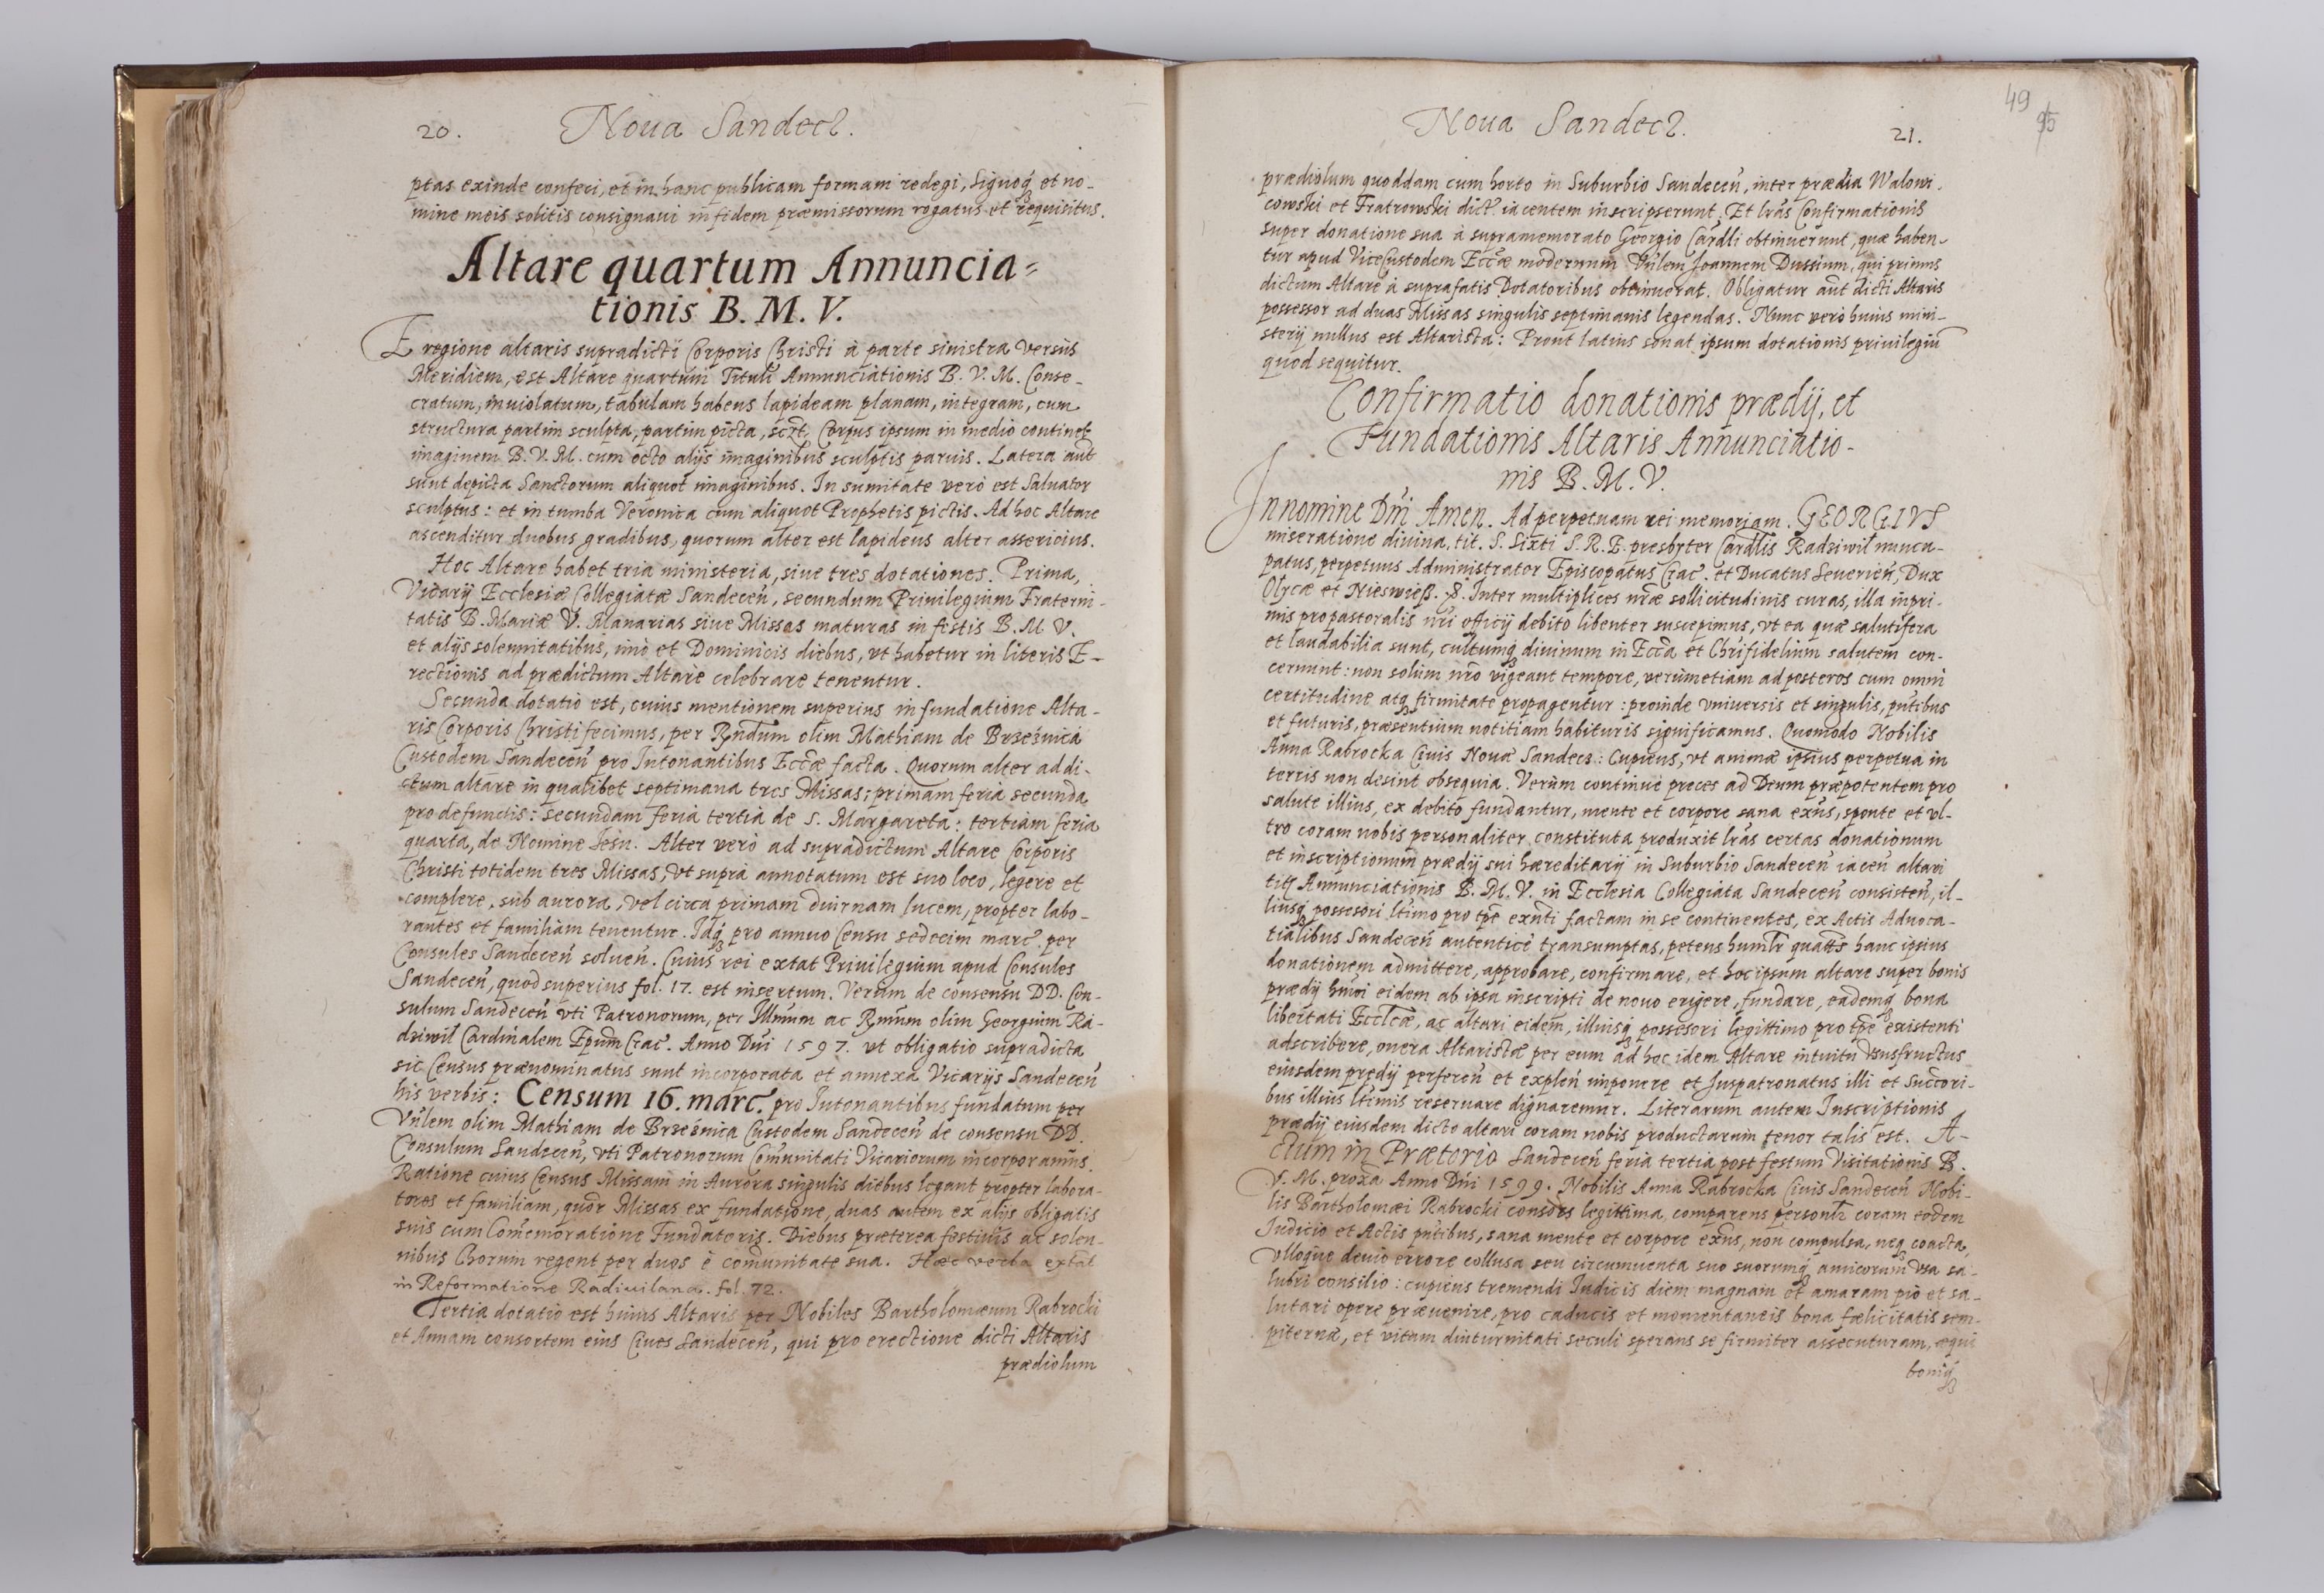 20. Noua Sandecz.
ptas exinde confeci, et in hanc publicam formam redegi, signoq́ et no-
mine meis solitis consignaui in fidem præmissorum rogatus et requisitus.
Altare quartum Annuncia=
tionis B. M. V.
E regione altaris supradicti Corporis Christi à parte sinistra versus
Meridiem, est Altare quartum Tituli Annunciationis B. V. M. Conse-
cratum, inuiolatum, tabulam habens lapideam planam, integram, cum
structura partim sculpta, partim picta, Corpus ipsum in medio continet
imaginem B. V. M. cum octo alijs imaginibus sculptis paruis. Latera aut̃
sunt depicta Sanctorum aliquot imaginibus. In sumitate verò est Saluator
sculptus: et in tumba Veronica cum aliquot Prophetis pictis. Ad hoc Altare
ascenditur duobus gradibus, quorum alter est lapideus alter assericius.
Hoc Altare habet tria ministeria, siue tres dotationes. Prima,
Vicarij Ecclesiæ Collegiatæ Sandeceñ, secundum Priuilegium Fraterni-
tatis B. Mariæ V. Manarias siue Missas maturas in festis B. M V.
et alijs solennitatibus, imò et Dominicis diebus, vt habetur in literis E-
rectionis ad prædictum Altare celebrare tenentur.
Secunda dotatio est, cuius mentionem superius in fundatione Alta-
ris Corporis Christi fecimus, per Rñdum olim Mathiam de Brzeźnica
Custodem Sandeceñ pro Intonantibus Eccæ facta. Quorum alter ad di-
ctum altare in qualibet septimana tres Missas; primam feria secunda
pro defunctis: secundam feria tertia de S. Margareta: tertiam feria
quarta, de Nomine Iesu. Alter verò ad supradictum Altare Corporis
Christi totidem tres Missas, vt supra annotatum est suo loco, legere et
complere, sub aurora, vel circa primam diurnam lucem, propter labo-
rantes et familiam tenentur. Idq́ pro annuo Censu sedecim marc̃. per
Consules Sandeceñ solueñ. Cuius rei extat Priuilegium apud Consules
Sandeceñ, quod superius fol. 17. est insertum. Verùm de consensu DD. Con-
sulum Sandeceñ vti Patronorum, per Illmum ac Rmum olim Georgium Ra-
dziwił Cardinalem Epum Crac̃. Anno Dñi 1597. vt obligatio supradicta
sic Census prænominatus sunt incorporata et annexa Vicarijs Sandeceñ
his verbis: Censum 16. marc̃. pro Intonantibus fundatum per
Vñlem olim Mathiam de Brzeźnica Custodem Sandeceñ de consensu DD.
Consulum Sandeceñ, vti Patronorum Com̃unitati Vicariorum incorporamus.
Ratione cuius Census Missam in Aurora singulis diebus legant propter labora-
tores et familiam, quõr Missas ex fundatione, duas autem ex alijs obligatis
suis cum Com̃emoratione Fundatoris. Diebus præterea festiuis ac solen-
nibus Chorum regent per duos è com̃unitate sua. Hæc verba extãt
in Reformatione Radiuilana. fol. 72.
Tertia dotatio est huius Altaris per Nobiles Bartholomæum Rabrocki
et Annam consortem eius Ciues Sandeceñ, qui pro erectione dicti Altaris
prædiolum
49
95
Noua Sandecz. 21.
prædiolum quoddam cum horto in Suburbio Sandeceñ, inter prædia Walowi-
cowski et Fratrowski dict̃. iacentem inscripserunt. Et lr̃as Confirmationis
super donatione sua à supramemorato Georgio Cardli obtinuerunt, quæ haben-
tur apud ViceCustodem Eccæ modernum Vñlem Joannem Dussium, qui primus
dictum Altare à suprafatis Dotatoribus obtinuerat. Obligatur aut̃ dicti Altaris
possessor ad duas Missas singulis septimanis legendas. Nunc verò huius mini-
sterij nullus est Altarista: Prout latius sonat ipsum dotationis priuilegiũ
quod sequitur.
Confirmatio donationis prædij, et
Fundationis Altaris Annunciatio-
nis B. M. V.
In nomine Dñi Amen. Ad perpetuam rei memoriam. GEORGIVS
miseratione diuina, tit. S. Sixti S. R. E. presbyter Cardlis Radziwił nuncu-
patus, perpetuus Administrator Episcopatus Crac̃. et Ducatus Seuerieñ, Dux
Olycæ et Nieswieß. Inter multiplices nr̃æ sollicitudinis curas, illa inpri-
mis pro pastoralis nr̃i officij debito libenter suscepimus, vt ea quæ salutifera
et laudabilia sunt, cultumq́ diuinum in Ecca et Chrifidelium salutem con-
cernunt: non solùm nr̃o vigeant tempore, verumetiam ad posteros cum omni
certitudine atq́ firmitate propagentur: proinde vniuersis et singulis, pñtibus
et futuris, præsentium notitiam habituris significamus. Quomodo Nobilis
Anna Rabrocka Ciuis Nouæ Sandecz: Cupiens, vt animæ ipsius perpetua in
terris non desint obsequia. Verùm continuè preces ad Deum præpotentem pro
salute illius, ex debito fundantur, mente et corpore sana exñs, sponte et vl-
tro coram nobis personaliter constituta produxit lr̃as certas donationum
et inscriptionum prædij sui hæreditarij in Suburbio Sandeceñ iaceñ altari
titł Annunciationis B. M. V. in Ecclesia Collegiata Sandeceñ consisteñ, il-
liusq́ possessori ltimo pro tp̃e exñti factam in se continentes, ex Actis Aduoca-
tialibus Sandeceñ autenticè transumptas, petens humlr quatts hanc ipsius
donationem admittere, approbare, confirmare, et hoc ipsum altare super bonis
prædij hmoi eidem ab ipsa inscripti de nouo erigere, fundare, eademq́ bona
libertati Ecclcæ, ac altari eidem, illiusq́ possesori legittimo pro tp̃e existenti
adscribere, onera Altaristæ per eum ad hoc idem Altare intuitu vsusfructus
eiusdem prędij perfereñ et expleñ imponere et Juspatronatus illi et succori-
bus illius ltimis reseruare dignaremur. Literarum autem Inscriptionis
prædij eiusdem dicto altari coram nobis productarum tenor talis est. A-
ctum in Prætorio Sandeceñ feria tertia post festum Visitationis B.
V. M. proxa Anno Dñi 1599. Nobilis Anna Rabrocka Ciuis Sandeceñ Nobi-
lis Bartholomæi Rabrocki consors legittima, comparens personlr coram eodem
Iudicio et Actis pñtibus, sana mente et corpore exñs, non compulsa, neq́ coacta,
vlloque deuio errore collusa seu circumuenta suo suorumq́ amicorum vsa sa-
lubri consilio: cupiens tremendi Iudicis diem magnam et amaram pio et sa-
lutari opere præuenire, pro caducis et momentaneis bona fœlicitatis sem-
piternæ, et vitam diuturnitati seculi sperans se firmiter assecuturam, æqui
boniq́